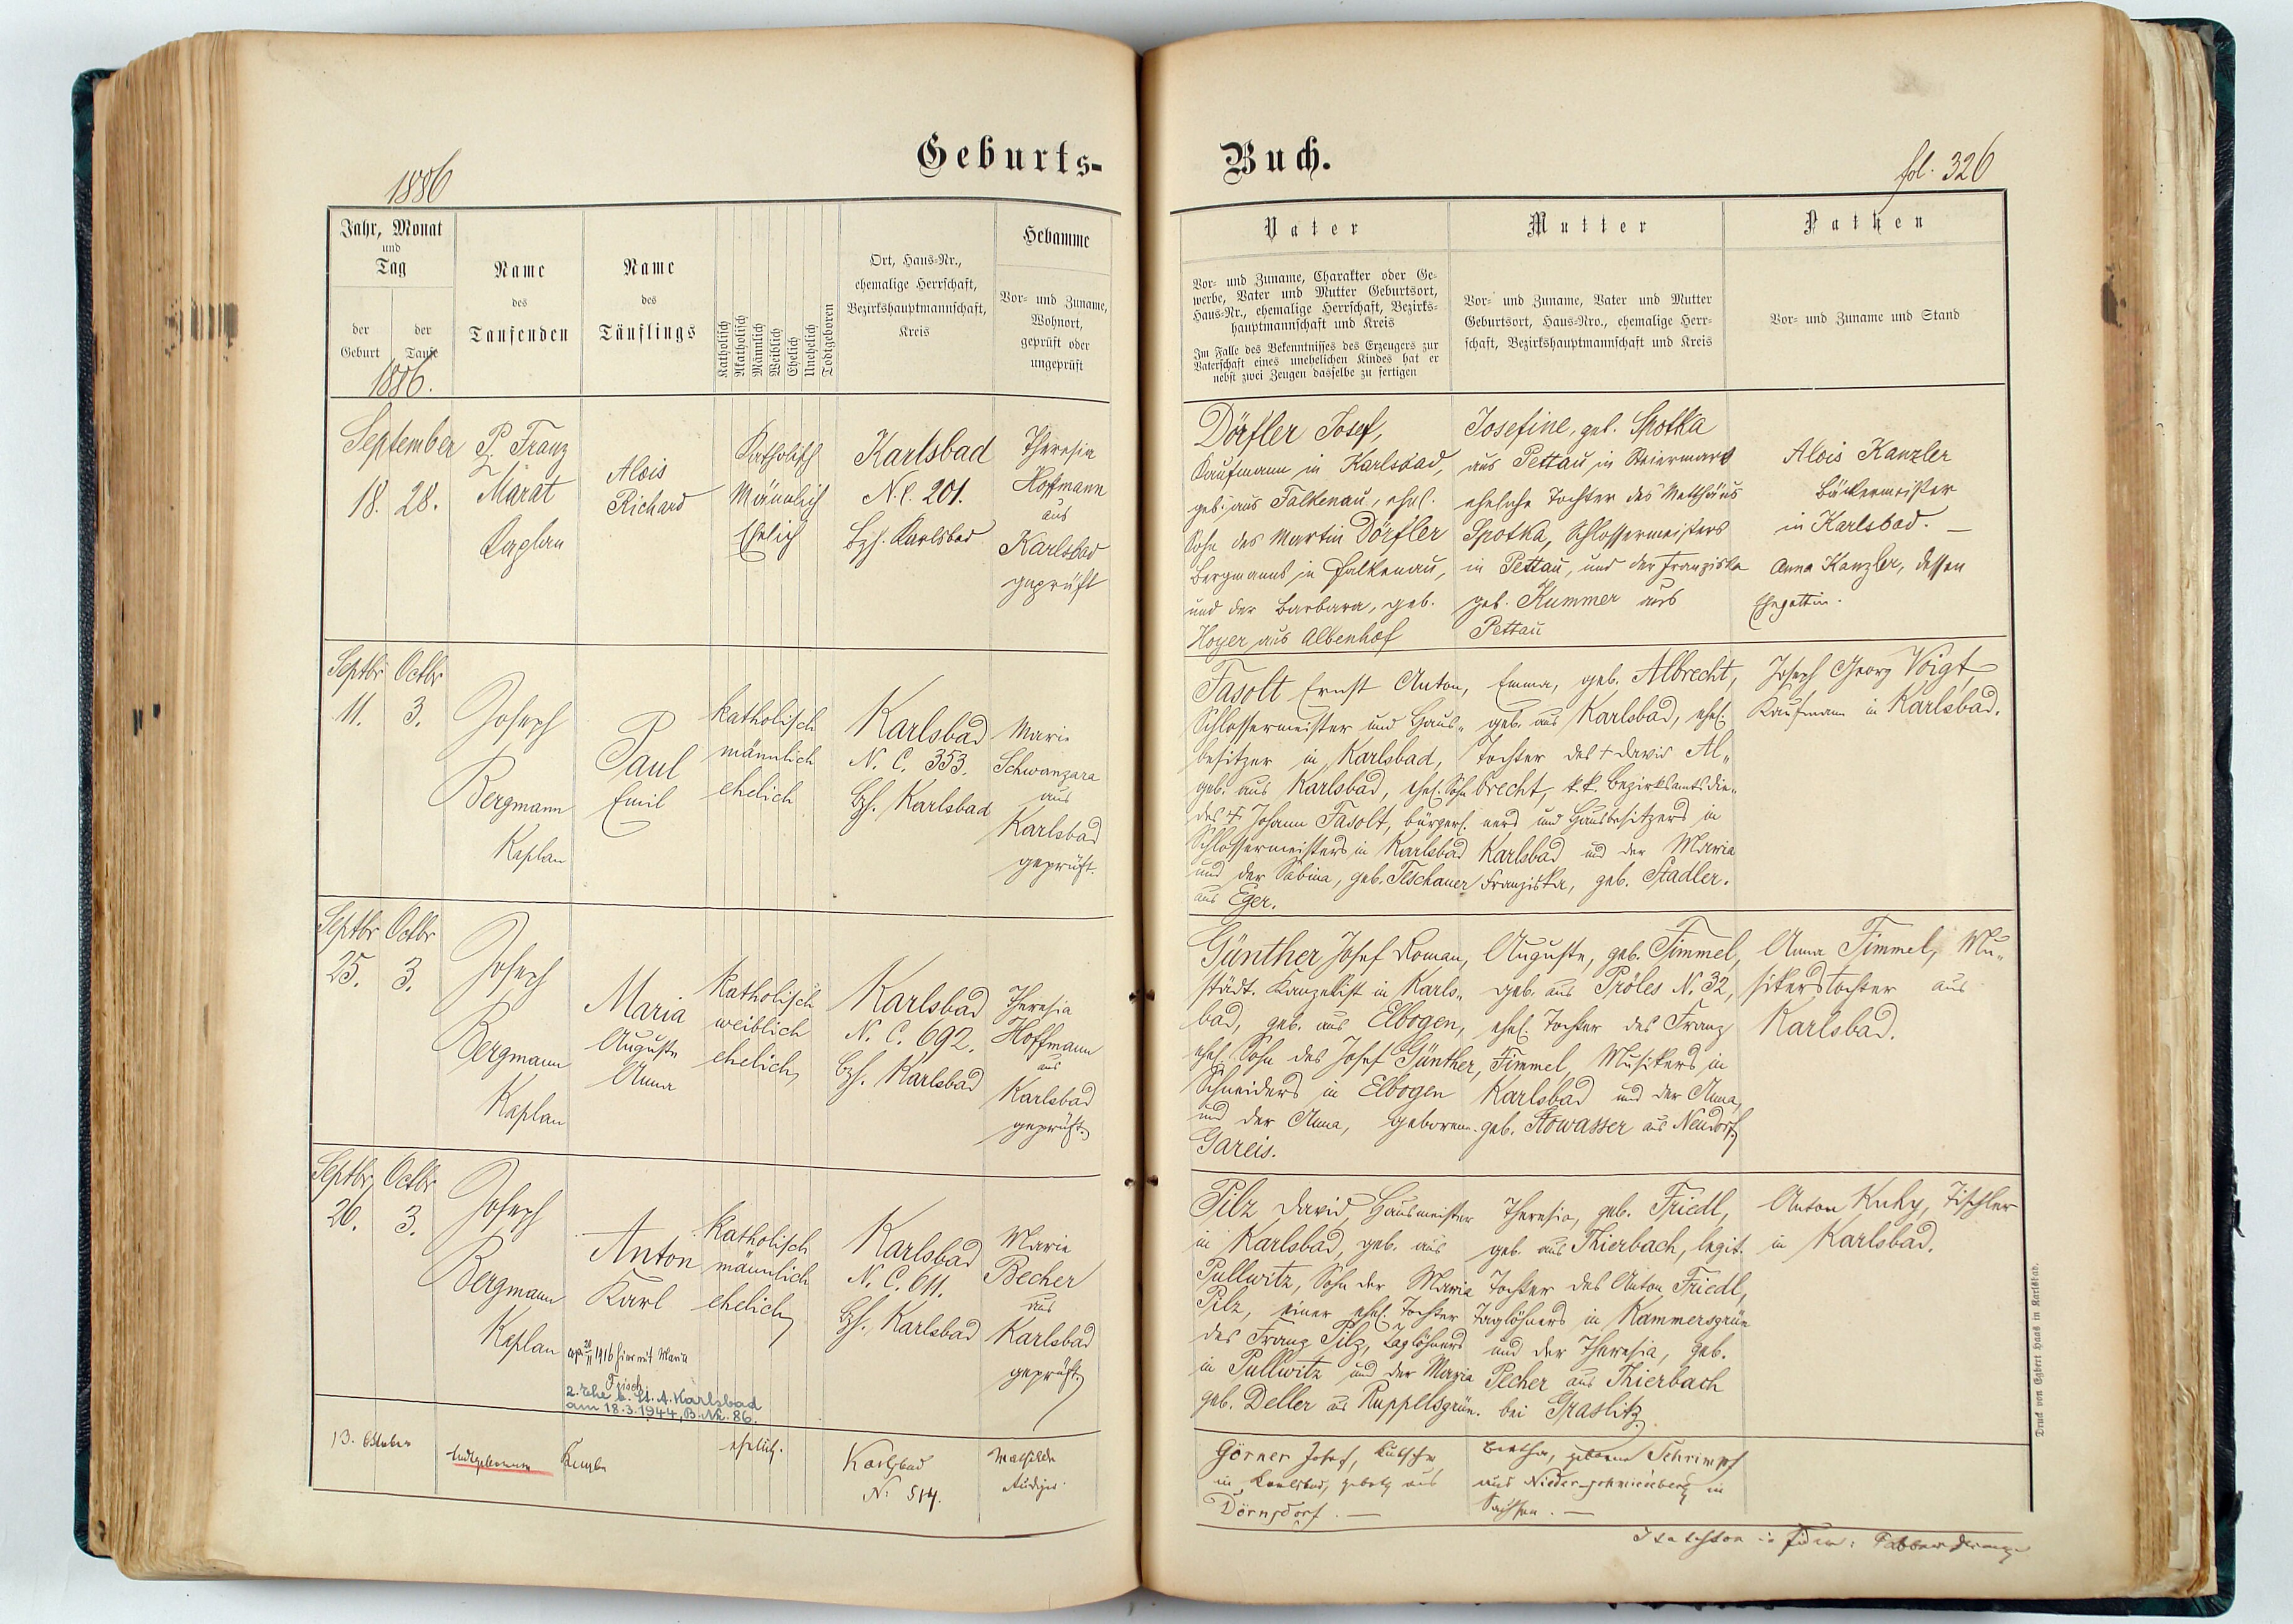 Geburts-
Buch.
1886
fol. 326
Jahr, Monat
und
Tag
der
Geburt
der
Taufe
1886.
Name
des
Taufenden
Name
des
Täuflings
Katholisch
Akatholisch
Männlich
Weiblich
Ehelich
Unehelich
Todtgeboren
Ort, Haus-Nr.,
ehemalige Herrschaft,
Bezirkshauptmannschaft,
Kreis
Hebamme
Vor- und Zuname,
Wohnort,
geprüft oder
ungeprüft
Vater
Vor- und Zuname, Charakter oder Ge-
werbe, Vater und Mutter Geburtsort,
Haus-Nr., ehemalige Herrschaft, Bezirks-
hauptmannschaft und Kreis
Im Falle des Bekenntnisses des Erzeugers zur
Vaterschaft eines unehelichen Kindes hat er
nebst zwei Zeugen dasselbe zu fertigen
Mutter
Vor- und Zuname, Vater und Mutter
Geburtsort, Haus-Nro., ehemalige Herr-
schaft, Bezirkshauptmannschaft und Kreis
Pathen
Vor- und Zuname und Stand
September
18. 28.
P. Franz
Marat
Caplan
Alois
Richard
Katholisch
Männlich
Ehelich
Karlsbad
N.C. 201.
Bzh. Karlsbad
Theresia
Hoffmann
aus
Karlsbad
geprüft
Dörfler Josef,
Kaufmann in Karlsbad,
geb. aus Falkenau, ehel.
Sohn des Martin Dörfler
Bergmanns in Falkenau,
und der Barbara, geb.
Hoyer aus Albenhof
Josefine, geb. Spotka
aus Pettau in Steiermark
eheliche Tochter des Matthäus
Spotka, Schlossermeisters
in Pettau, und der Franziska
geb. Kummer aus
Pettau
Alois Kanzler
Bäckermeister
in Karlsbad. —
Anna Kanzler, dessen
Ehegattin.
Septbr Octbr
11. 3.
Joseph
Bergmann
Kaplan
Paul
Emil
katholisch
männlich
ehelich
Karlsbad
N. C. 353.
Bzh. Karlsbad
Marie
Schwanzara
aus
Karlsbad
geprüft.
Fasolt Ernst Anton,
Schlossermeister und Haus-
besitzer in Karlsbad,
geb. aus Karlsbad, ehel. Sohn
des † Johann Fasolt, bürgerl.
Schlossermeisters in Karlsbad
und der Sabina, geb. Teschauer
aus Eger.
Emma, geb. Albrecht,
geb. aus Karlsbad, ehel.
Tochter des † David Al-
brecht, k.k. Bezirksamtsdie-
ners und Hausbesitzers in
Karlsbad und der Maria
Franziska, geb. Stadler.
Joseph Georg Voigt,
Kaufmann in Karlsbad.
Septbr Octbr
25. 3.
Joseph
Bergmann
Kaplan
Maria
Auguste
Anna
katholisch
weiblich
ehelich
Karlsbad
N. C. 692.
Bzh. Karlsbad
Theresia
Hoffmann
aus
Karlsbad
geprüft.
Günther Josef Roman,
städt. Kanzelist in Karls-
bad, geb. aus Elbogen,
ehel. Sohn des Josef Günther,
Schneiders in Elbogen
und der Anna, geborene
Gareis.
Auguste, geb. Timmel,
geb. aus Pröles N. 32,
ehel. Tochter des Franz
Timmel, Musikers in
Karlsbad und der Anna,
geb. Stowasser aus Neudorf.
Anna Timmel, Mu-
sikerstochter aus
Karlsbad.
Septbr Octbr
26. 3.
Joseph
Bergmann
Kaplan
Anton
Karl
katholisch
männlich
ehelich
cop. 20/11 1916 hier mit Maria
Frisch
2. Ehe b. St. A. Karlsbad
am 18.3.1944, B. Nr. 86.
Karlsbad
N. C. 611.
Bzh. Karlsbad
Marie
Becher
aus
Karlsbad
geprüft
Pilz David, Hausmeister
in Karlsbad, geb. aus
Pullwitz, Sohn der Maria
Pilz, einer ehel. Tochter
des Franz Pilz, Taglöhners
in Pullwitz und der Maria
geb. Deller aus Ruppelsgrün.
Theresia, geb. Friedl,
geb. aus Thierbach, legit.
Tochter des Anton Friedl,
Taglöhners in Kammersgrün
und der Theresia, geb.
Pecher aus Thierbach
bei Graslitz
Anton Kuhy, Tischler
in Karlsbad.
13. Oktober
todtgeborener
Knabe
ehelich.
Karlsbad
N. 514.
Mathilde
Görner Josef, Kutscher
in Karlsbad, gebürtig aus
Dörnsdorf. —
Bertha, geborene Schrimpf
aus Niederschmiedeberg in
Sachsen. —
Druck von Egbert Haas in Karlsbad.